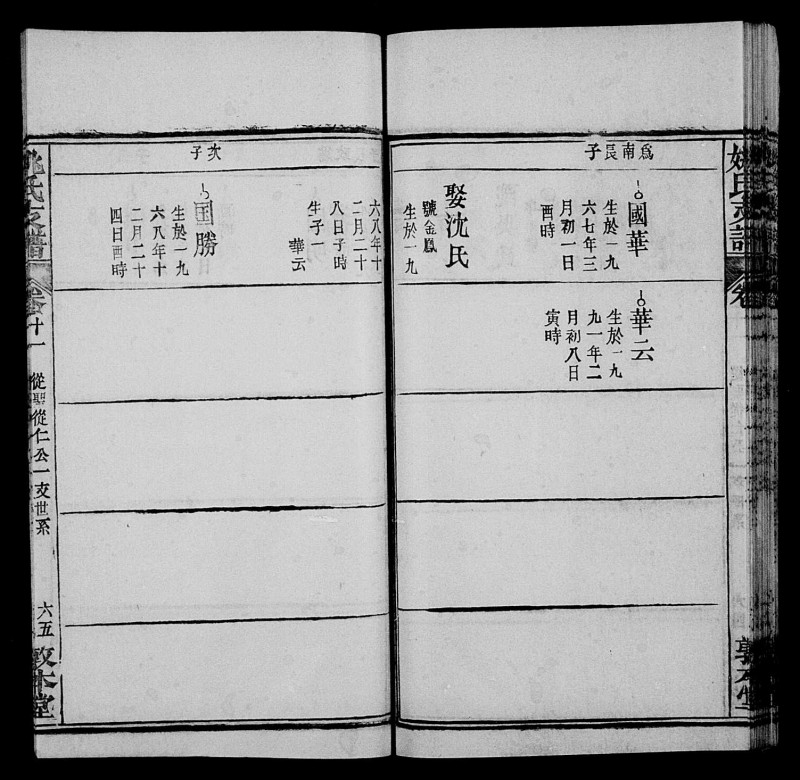 爲南長子
國華
生於一九
六七年三
月初一日
酉時
娶沈氏
號金鳳
生於一九
六八年十
二月二十
八日子時
生子一
華云
華云
生於一九
九一年二
月初八日
寅時
次子
国勝
生於一九
六八年十
二月二十
四日酉時
姚氏支譜
卷
敦本堂
姚氏支譜
卷十一
從聖從仁公一支世系
六五
敦本堂